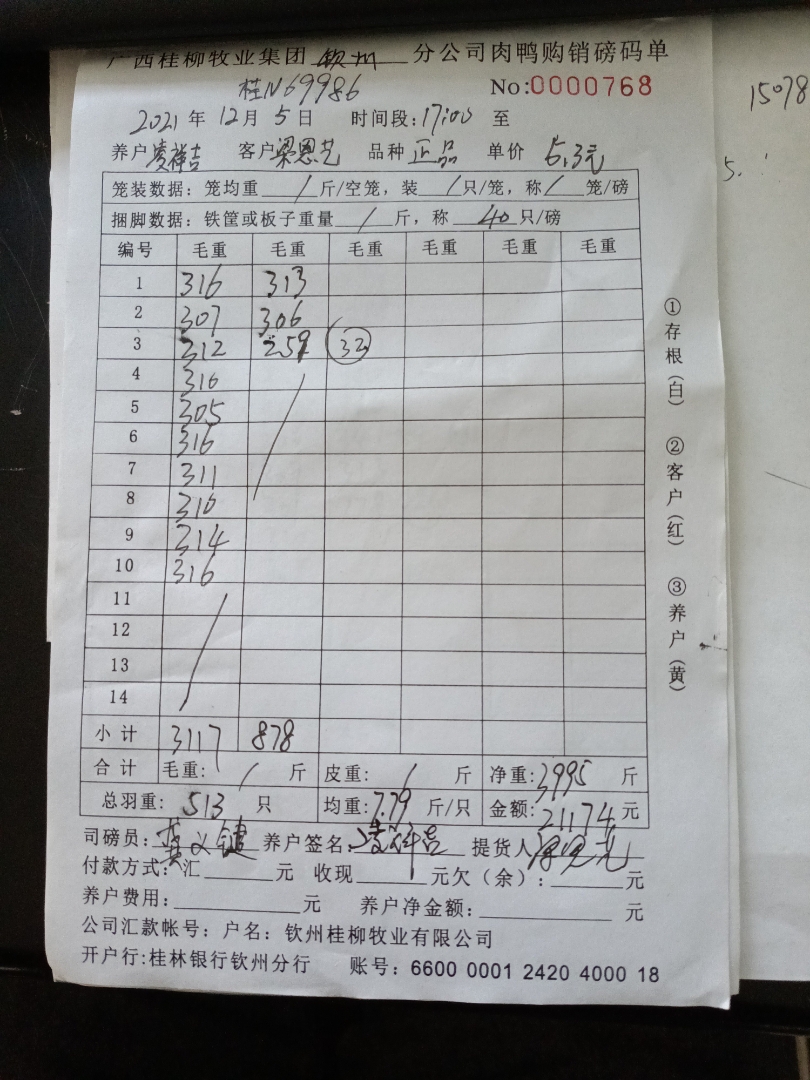 广西桂柳牧业集团 钦州 分公司肉鸭购销磅码单
桂N69986 No:0000768
2021年 12月 5日 时间段:17:00 至
养户 凌祥吉 客户 梁恩艺 品种 正品 单价 5.3元
笼装数据: 笼均重 / 斤/空笼, 装 / 只/笼, 称 / 笼/磅
捆脚数据: 铁筐或板子重量 / 斤, 称 40 只/磅
编号 毛重 毛重 毛重 毛重 毛重 毛重
1 316 313
2 307 306
3 312 259 33
4 316
5 305
6 316
7 311
8 310
9 314
10 316
11
12
13
14
小计 3117 878
合计 毛重: / 斤 皮重: / 斤 净重: 3995 斤
总羽重: 513 只 均重: 7.79 斤/只 金额: 21174 元
司磅员: 义键 养户签名: 凌祥吉 提货人
付款方式: 汇 元 收现 元欠(余): 元
养户费用: 元 养户净金额: 元
公司汇款帐号: 户名: 钦州桂柳牧业有限公司
开户行:桂林银行钦州分行 账号: 6600 0001 2420 4000 18
①存根(白) ②客户(红) ③养户(黄)
15078
5.